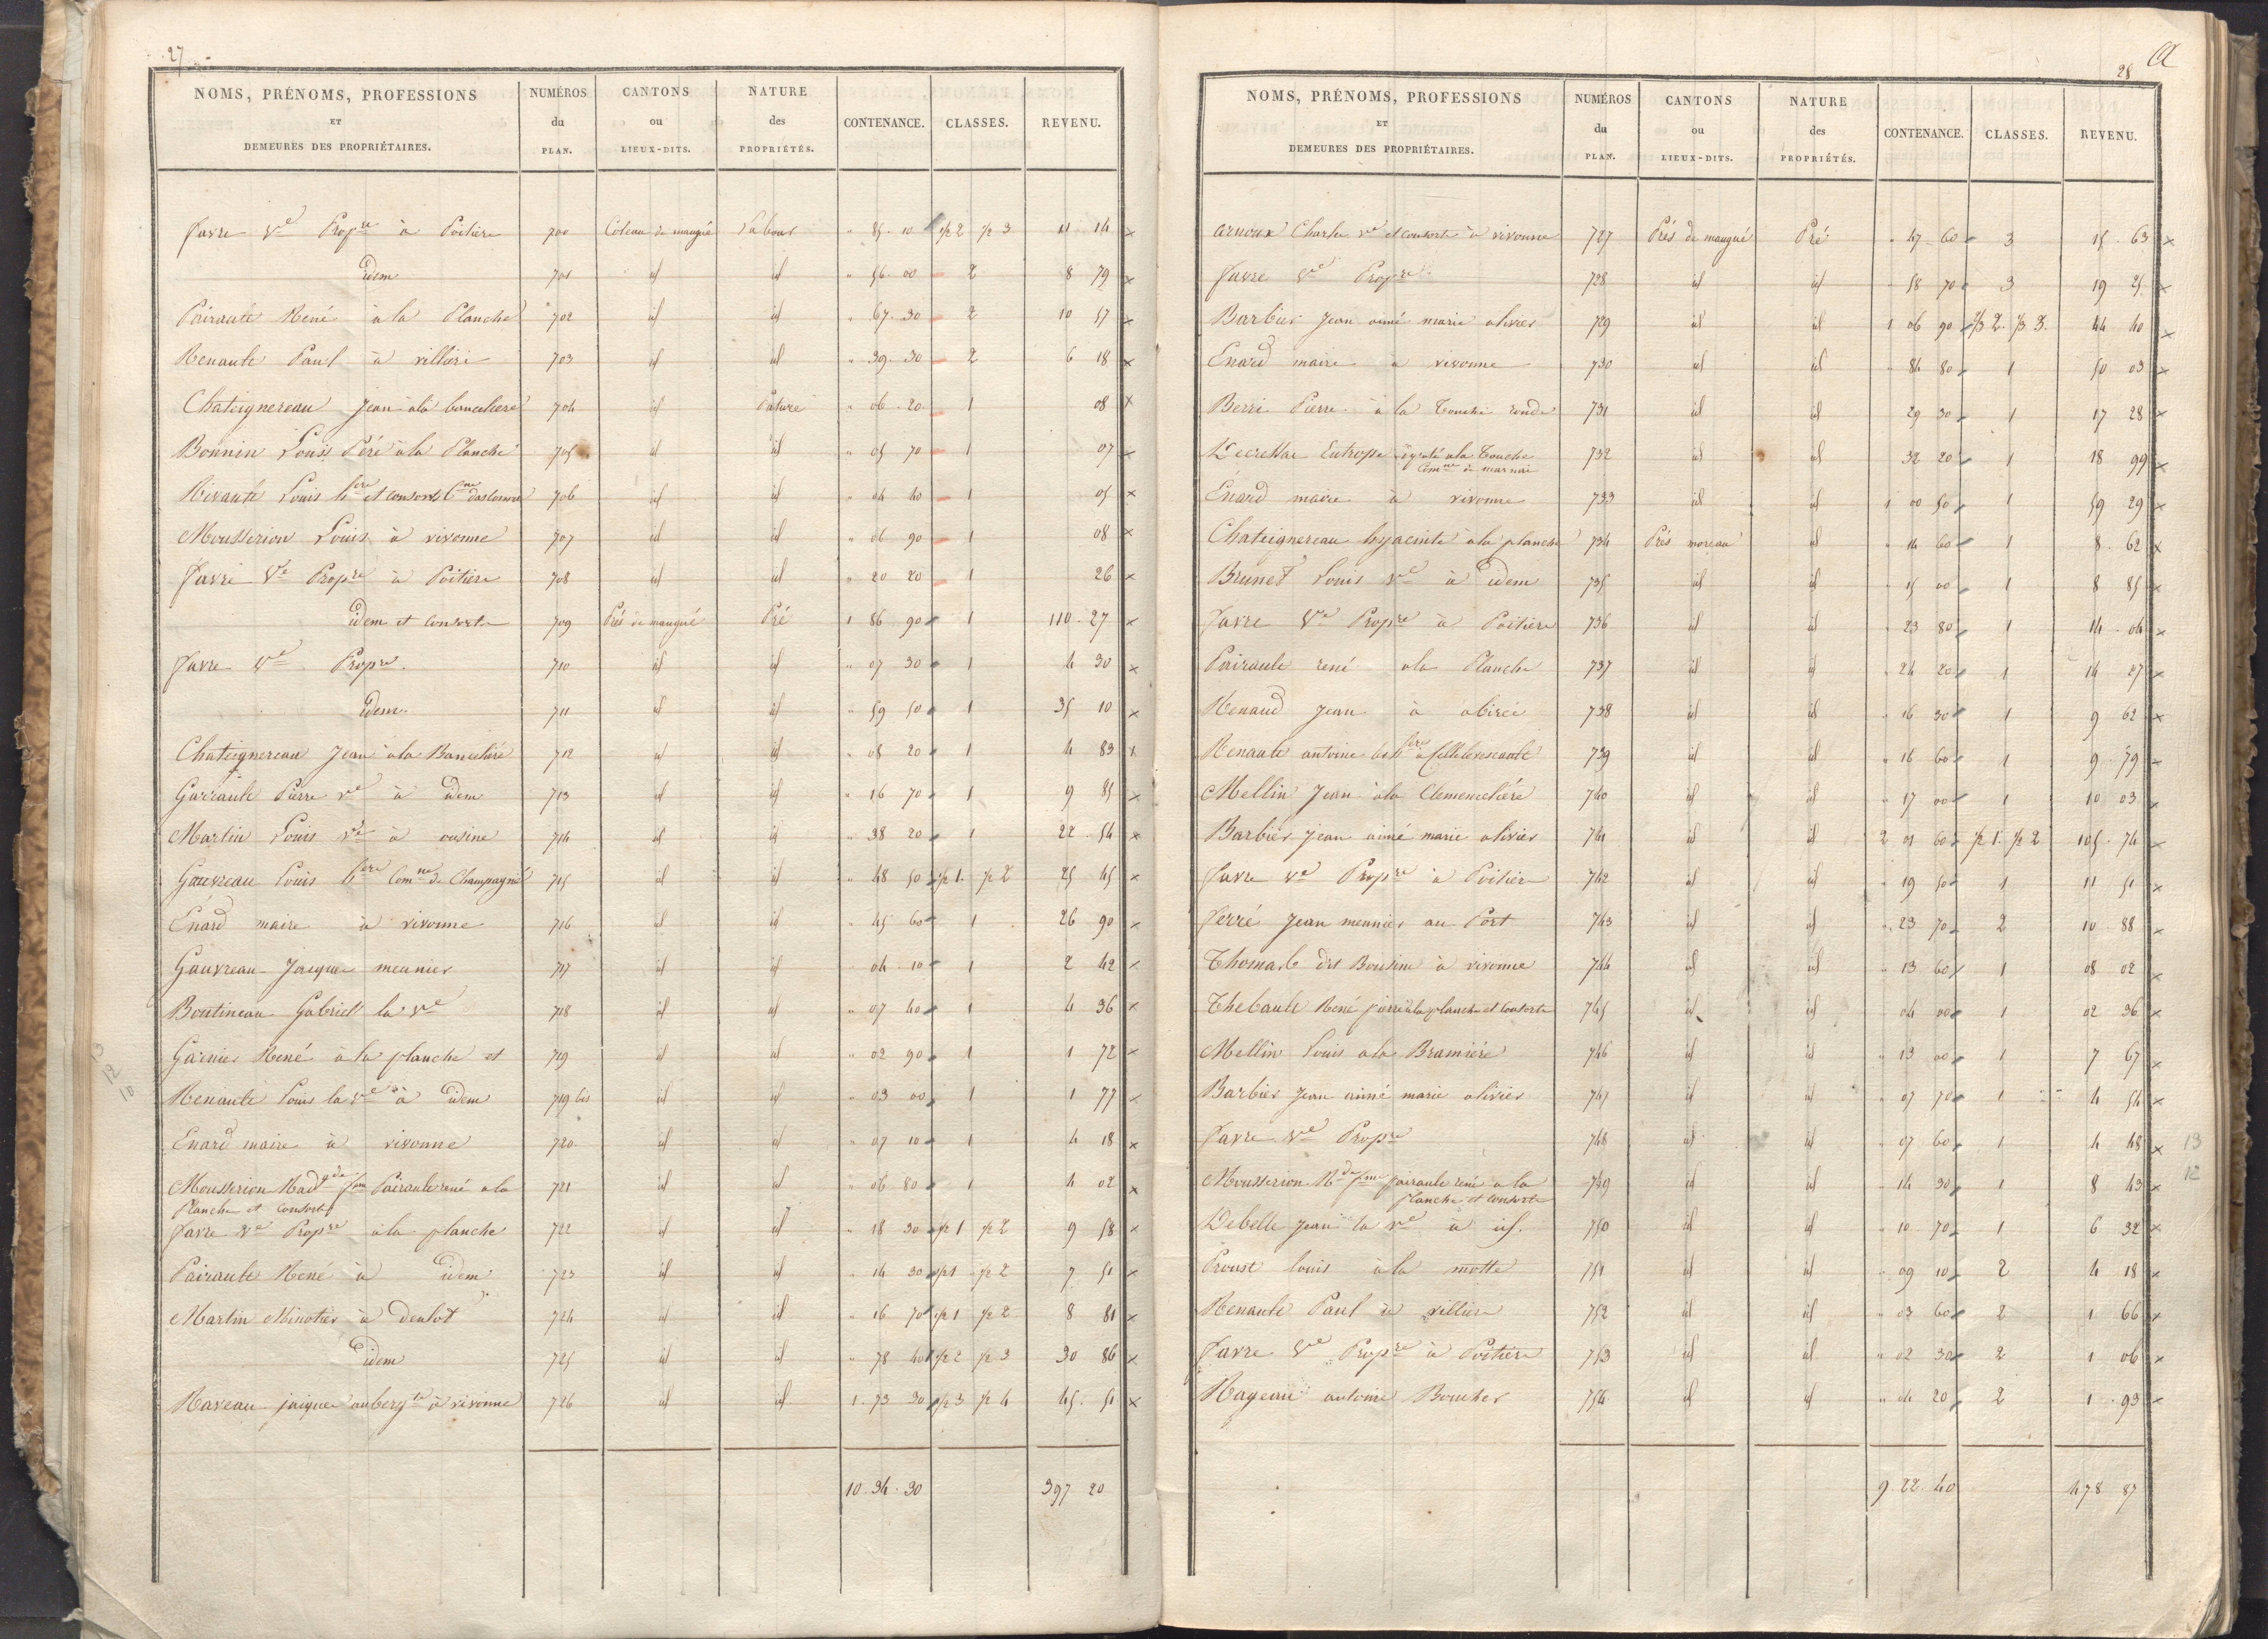 27
NOMS, PRÉNOMS, PROFESSIONS ET DEMEURES DES PROPRIÉTAIRES. NUMÉROS du PLAN. CANTONS ou LIEUX-DITS. NATURE des PROPRIÉTÉS. CONTENANCE. CLASSES. REVENU.
Favre Ve Propre à Poitiers 700 Coteau de maugué Labour " 85 10 1/2 2 1/2 3 11 14 x
idem 701 id id " 56 00 2 8 79 x
Pairault René à la Planche 702 id id " 67 30 2 10 57 x
Renault Paul à villiers 703 id id " 39 30 2 6 18 x
Chateignereau Jean à la 704 id Pature " 06 20 1 08 x
Bonnin Louis Péré à la Planche 705 id id " 05 70 1 07 x
Rivault Louis hers et consorts 706 id id " 04 40 1 05 x
Mousserion Louis à vivonne 707 id id " 06 90 1 08 x
Favre Ve Propre à Poitiers 708 id id " 20 20 1 26 x
idem et Consorts 709 Prés de maugué Pré 1 86 90 1 110 27 x
Favre Ve Propre. 710 id id " 07 30 1 4 30 x
idem 711 id id " 59 50 1 35 10 x
Chateignereau Jean à la 712 id id " 08 20 1 4 83 x
Garrault Pierre ve à idem 713 id id " 16 70 1 9 85 x
Martin Louis ve à ousine 714 id id " 38 20 1 22 54 x
Gauvreau Louis hers Comne de Champagné 715 id id " 48 50 1/2 1. 1/2 2 25 45 x
Enard maire à vivonne 716 id id " 45 60 1 26 90 x
Gauvreau Jacques meunier 717 id id " 04 10 1 2 42 x
Boutineau Gabriel la ve 718 id id " 07 40 1 4 36 x
Garnier René à la planche et 719 id id " 02 90 1 1 72 x
Renault Louis la ve à idem 719 bis id id " 03 00 1 1 77 x
Enard maire à vivonne 720 id id " 07 10 1 4 18 x
Mousserion Madne fem Pairault rené a la 721 id id " 06 80 1 4 02 x
Planche et Consorts
Favre ve Propre à la planche 722 id id " 18 30 1/2 1 1/2 2 9 58 x
Pairault René à idem 723 id id " 14 30 1/2 1 1/2 2 7 51 x
Martin Minotier à Deulot 724 id id " 16 70 1/2 1 1/2 2 8 81 x
idem 725 id id " 78 40 1/2 2 1/2 3 30 86 x
Raveau jacques aubergte à vivonne 726 id id 1. 73 30 1/2 3 1/2 4 45. 51 x
10. 34. 30 397 20
13
12
10
28
a
NOMS, PRÉNOMS, PROFESSIONS ET DEMEURES DES PROPRIÉTAIRES. NUMÉROS du PLAN. CANTONS ou LIEUX-DITS. NATURE des PROPRIÉTÉS. CONTENANCE. CLASSES. REVENU.
Arnoux Charles ve et consorts à vivonne 727 Prés de maugué Pré " 47 60 3 15. 63 x
Favre Ve Propre 728 id id " 58 70 3 19 25 x
Barbier Jean aimé marie olivier 729 id id 1 06 90 2/3 2. 1/3 3. 44 40 x
Enard maire à vivonne 730 id id " 84 80 1 50 03 x
Berri Pierre à la Touche ronde 731 id id " 29 30 1 17 28 x
Eutrope à la Touche 732 id id " 32 20 1 18 99 x
Comne de marnai
Enard maire à vivonne 733 id id 1 00 50 1 59 29 x
Chateignereau hyacinte à la planche 734 Prés moreau id " 14 60 1 8. 62 x
Brunet Louis ve à idem 735 id id " 15 00 1 8 85 x
Favre Ve Propre à Poitiers 736 id id " 23 80 1 14. 04 x
Pairault rené a la Planche 737 id id " 24 20 1 14 27 x
Renaud Jean à abiré 738 id id " 16 30 1 9 62 x
Renault antoine les hers à Cellelevescault 739 id id " 16 60 1 9. 79 x
Mellin Jean à la Clemencière 740 id id " 17 00 1 10 03 x
Barbier jean aimé marie olivier 741 id id 2 01 60 1/2 1. 1/2 2 105. 74 x
Favre ve Propre à Poitiers 742 id id " 19 50 1 11 51 x
Ferré Jean meunier au Port 743 id id " 23 70 2 10 88 x
Thomas dit Bousine à vivonne 744 id id " 13 60 1 08 02 x
Thebault René pierre à la planche et Consorts 745 id id " 04 00 1 02 36 x
Mellin Louis a la Bramière 746 id id " 13 00 1 7 67 x
Barbier Jean aimé marie olivier 747 id id " 07 70 1 4 54 x
Favre ve Propre 748 id id " 07 60 1 4 48 x
Mousserion Mde fme pairault rené a la 749 id id " 14 30 1 8 43 x
planche et Consorts
Debelle Jean la ve à id. 750 id id " 10 70 1 6 32 x
Proust louis à la motte 751 id id " 09 10 2 4 18 x
Renault Paul à villiers 752 id id " 03 60 2 1 66 x
Favre Ve Propre à Poitiers 753 id id " 02 30 2 1 06 x
Rageau antoine Boucher 754 id id " 04 20 2 1. 93 x
9. 22. 40 478 87
13
12